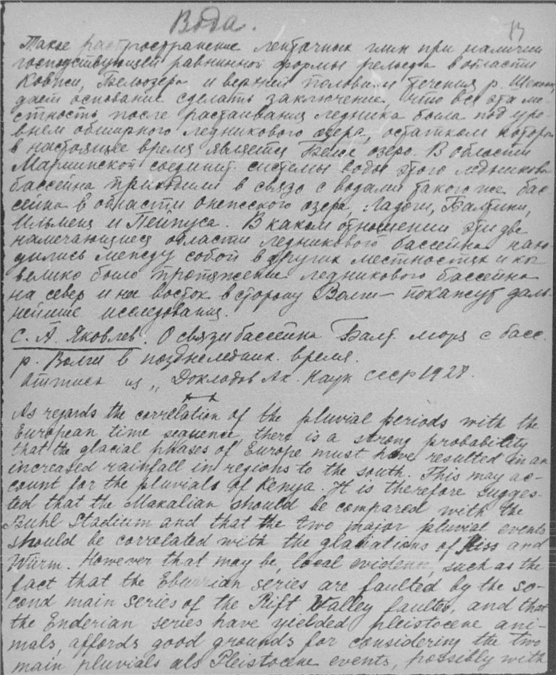 Вода.
13
Такое распространение ленточных глин при наличии
господствующей равнинной формы рельефа в области
Ковжи, Белоозера и верхней половины течения р. Шексны
дает основание сделать заключение, что вся эта ме
стность после растаивания ледника была под уро
внем обширного ледникового озера, остатком которого
в настоящее время является Белое озеро. В области
Мариинской соединит. системы воды этого ледникового
бассейна приходили в связь с водами такого же бас
сейна в области Онежского озера: Ладоги, Балтики,
Ильменя и Пейпуса. В каком отношении эти две
намечающиеся области ледникового бассейна нахо
дились между собой в других местностях и как
велико было протяжение ледникового бассейна
на север и на восток в сторону Волги — покажут даль
нейшие исследования.
С. А. Яковлев. О связи бассейна Балт. моря с басс.
р. Волги в позднеледник. время.
Оттиск из „Докладов Ак. Наук СССР 1928.
As regards the correlation of the pluvial periods with the
European time sequence, there is a strong probability
that the glacial phases of Europe must have resulted in an
increased rainfall in regions to the south. This may ac-
count for the pluvials of Kenya. It is therefore sugges-
ted that the Makalian should be compared with the
Buhl Stadium and that the two major pluvial events
should be correlated with the glaciations of Riss and
Würm. However that may be, local evidence, such as the
fact that the Eburrian series are faulted by the se-
cond main series of the Rift Valley faults, and that
the Enderian series have yielded pleistocene ani-
mals, affords good grounds for considering the two
main pluvials als Pleistocene events, possibly with